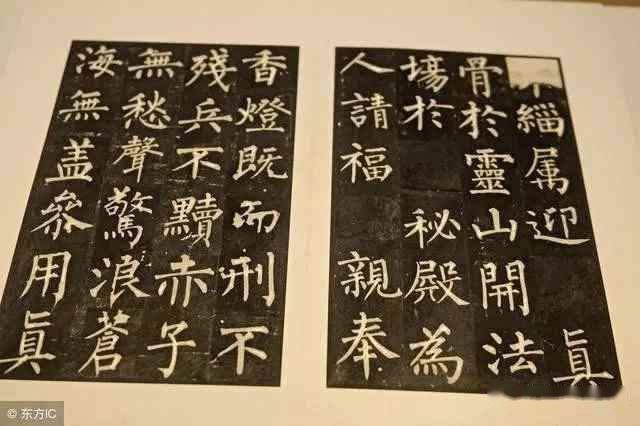 緇属迎真
骨於靈山開法
場於秘殿為
人請福親奉
香燈既而刑不
殘兵不黷赤子
無愁聲驚浪蒼
海無盖參用真
© 东方IC